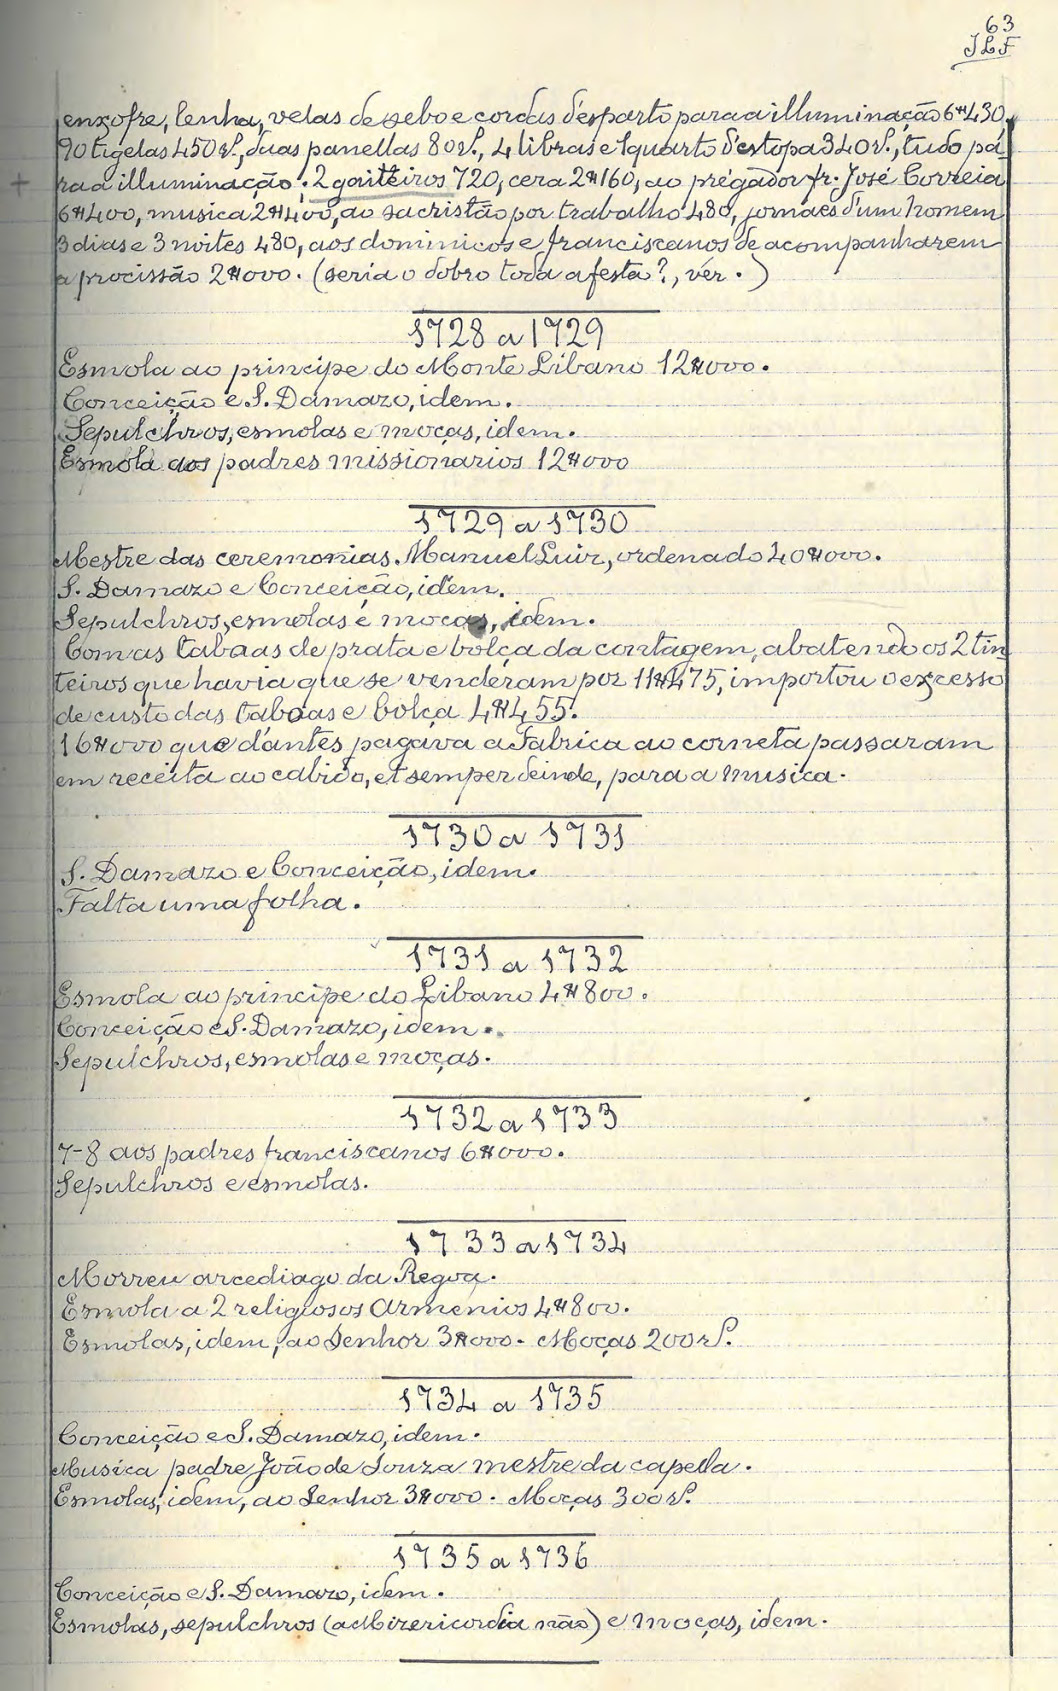 63
JLF
enxofre, lenha, velas de sebo e cordas d'esparto para a illuminação 6$430,
90 tigelas 450 rs., duas panellas 80 rs., 4 libras e 1 quarto d'estopa 340 rs., tudo pa-
ra a illuminação: 2 gaiteiros 720, cera 2$160, ao prégador fr. José Correia
6$400, musica 2$400, ao sacristão por trabalho 480, jornaes d'um homem
3 dias e 3 noites 480, aos dominicos e franciscanos de acompanharem
a procissão 2$000. (seria o dobro toda a festa?, vér.)
1728 a 1729
Esmola ao principe do Monte Libano 12$000.
Conceição e S. Damazo, idem.
Sepulchros, esmolas e moças, idem.
Esmola aos padres missionarios 12$000
1729 a 1730
Mestre das ceremonias. Manuel Luiz, ordenado 40$000.
S. Damazo e Conceição, idem.
Sepulchros, esmolas e moças, idem.
Com as taboas de prata e bolça da contagem, abatendo os 2 tin-
teiros que havia que se venderam por 11$475, importou o excesso
de custo das taboas e bolça 4$455.
16$000 que d'antes pagava a Fabrica ao corneta passaram
em receita ao cabido, et semper deinde, para a musica.
1730 a 1731
S. Damazo e Conceição, idem.
Falta uma folha.
1731 a 1732
Esmola ao principe do Libano 4$800.
Conceição e S. Damazo, idem.
Sepulchros, esmolas e moças.
1732 a 1733
7-8 aos padres franciscanos 6$000.
Sepulchros e esmolas.
1733 a 1734
Morreu arcediago da Regoa.
Esmola a 2 religiosos Armenios 4$800.
Esmolas, idem, ao Senhor 3$000. Moças 200 rs.
1734 a 1735
Conceição e S. Damazo, idem.
Musica padre João de Souza mestre da capella.
Esmolas, idem, ao Senhor 3$000. Moças 300 rs.
1735 a 1736
Conceição e S. Damazo, idem.
Esmolas, sepulchros (a Mizericordia não) e moças, idem.